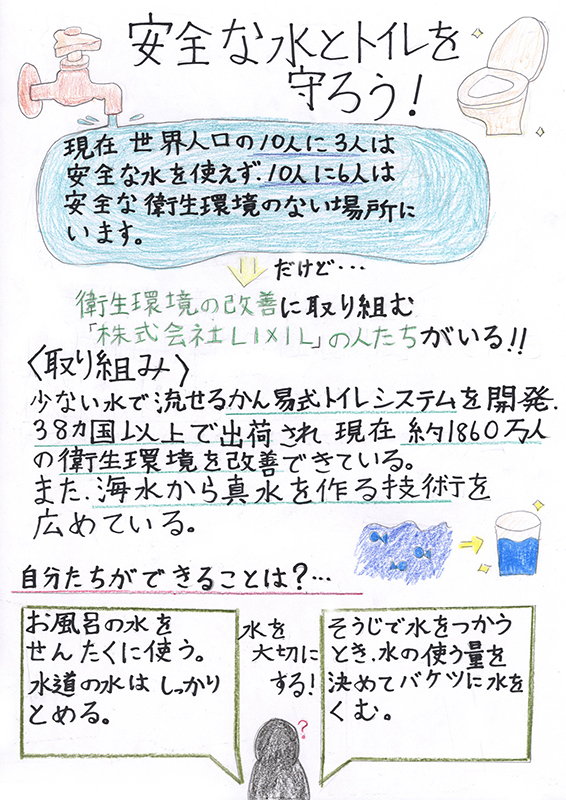 安全な水とトイレを
守ろう！
現在 世界人口の10人に3人は
安全な水を使えず、10人に6人は
安全な衛生環境のない場所に
います。
だけど…
衛生環境の改善に取り組む
「株式会社LIXIL」の人たちがいる!!
〈取り組み〉
少ない水で流せるかん易式トイレシステムを開発、
38カ国以上で出荷され 現在 約1860万人
の衛生環境を改善できている。
また、海水から真水を作る技術を
広めている。
自分たちができることは？…
お風呂の水を
せんたくに使う。
水道の水はしっかり
とめる。
水を
大切に
する！
そうじで水をつかう
とき、水の使う量を
決めてバケツに水を
くむ。
？